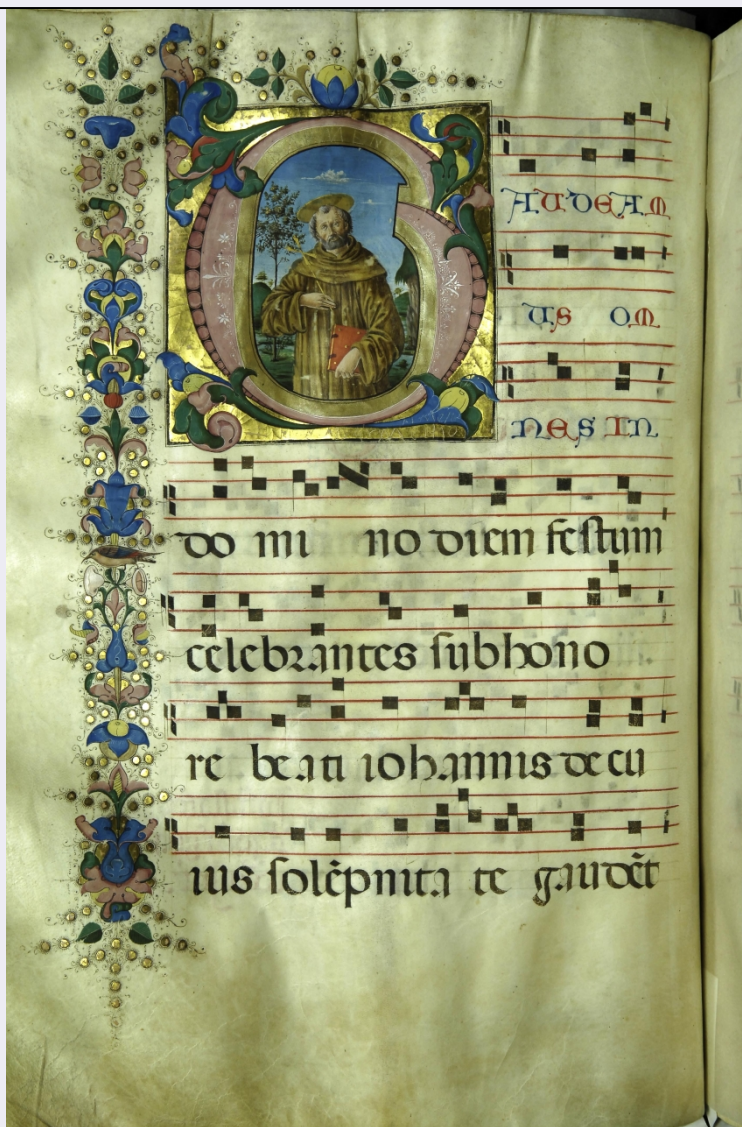 GAUDEAM
US OM
NES IN
do mi no diem festum
celebrantes sub hono
re beati iohannis de cu
ius solẽpnita te gaudẽt